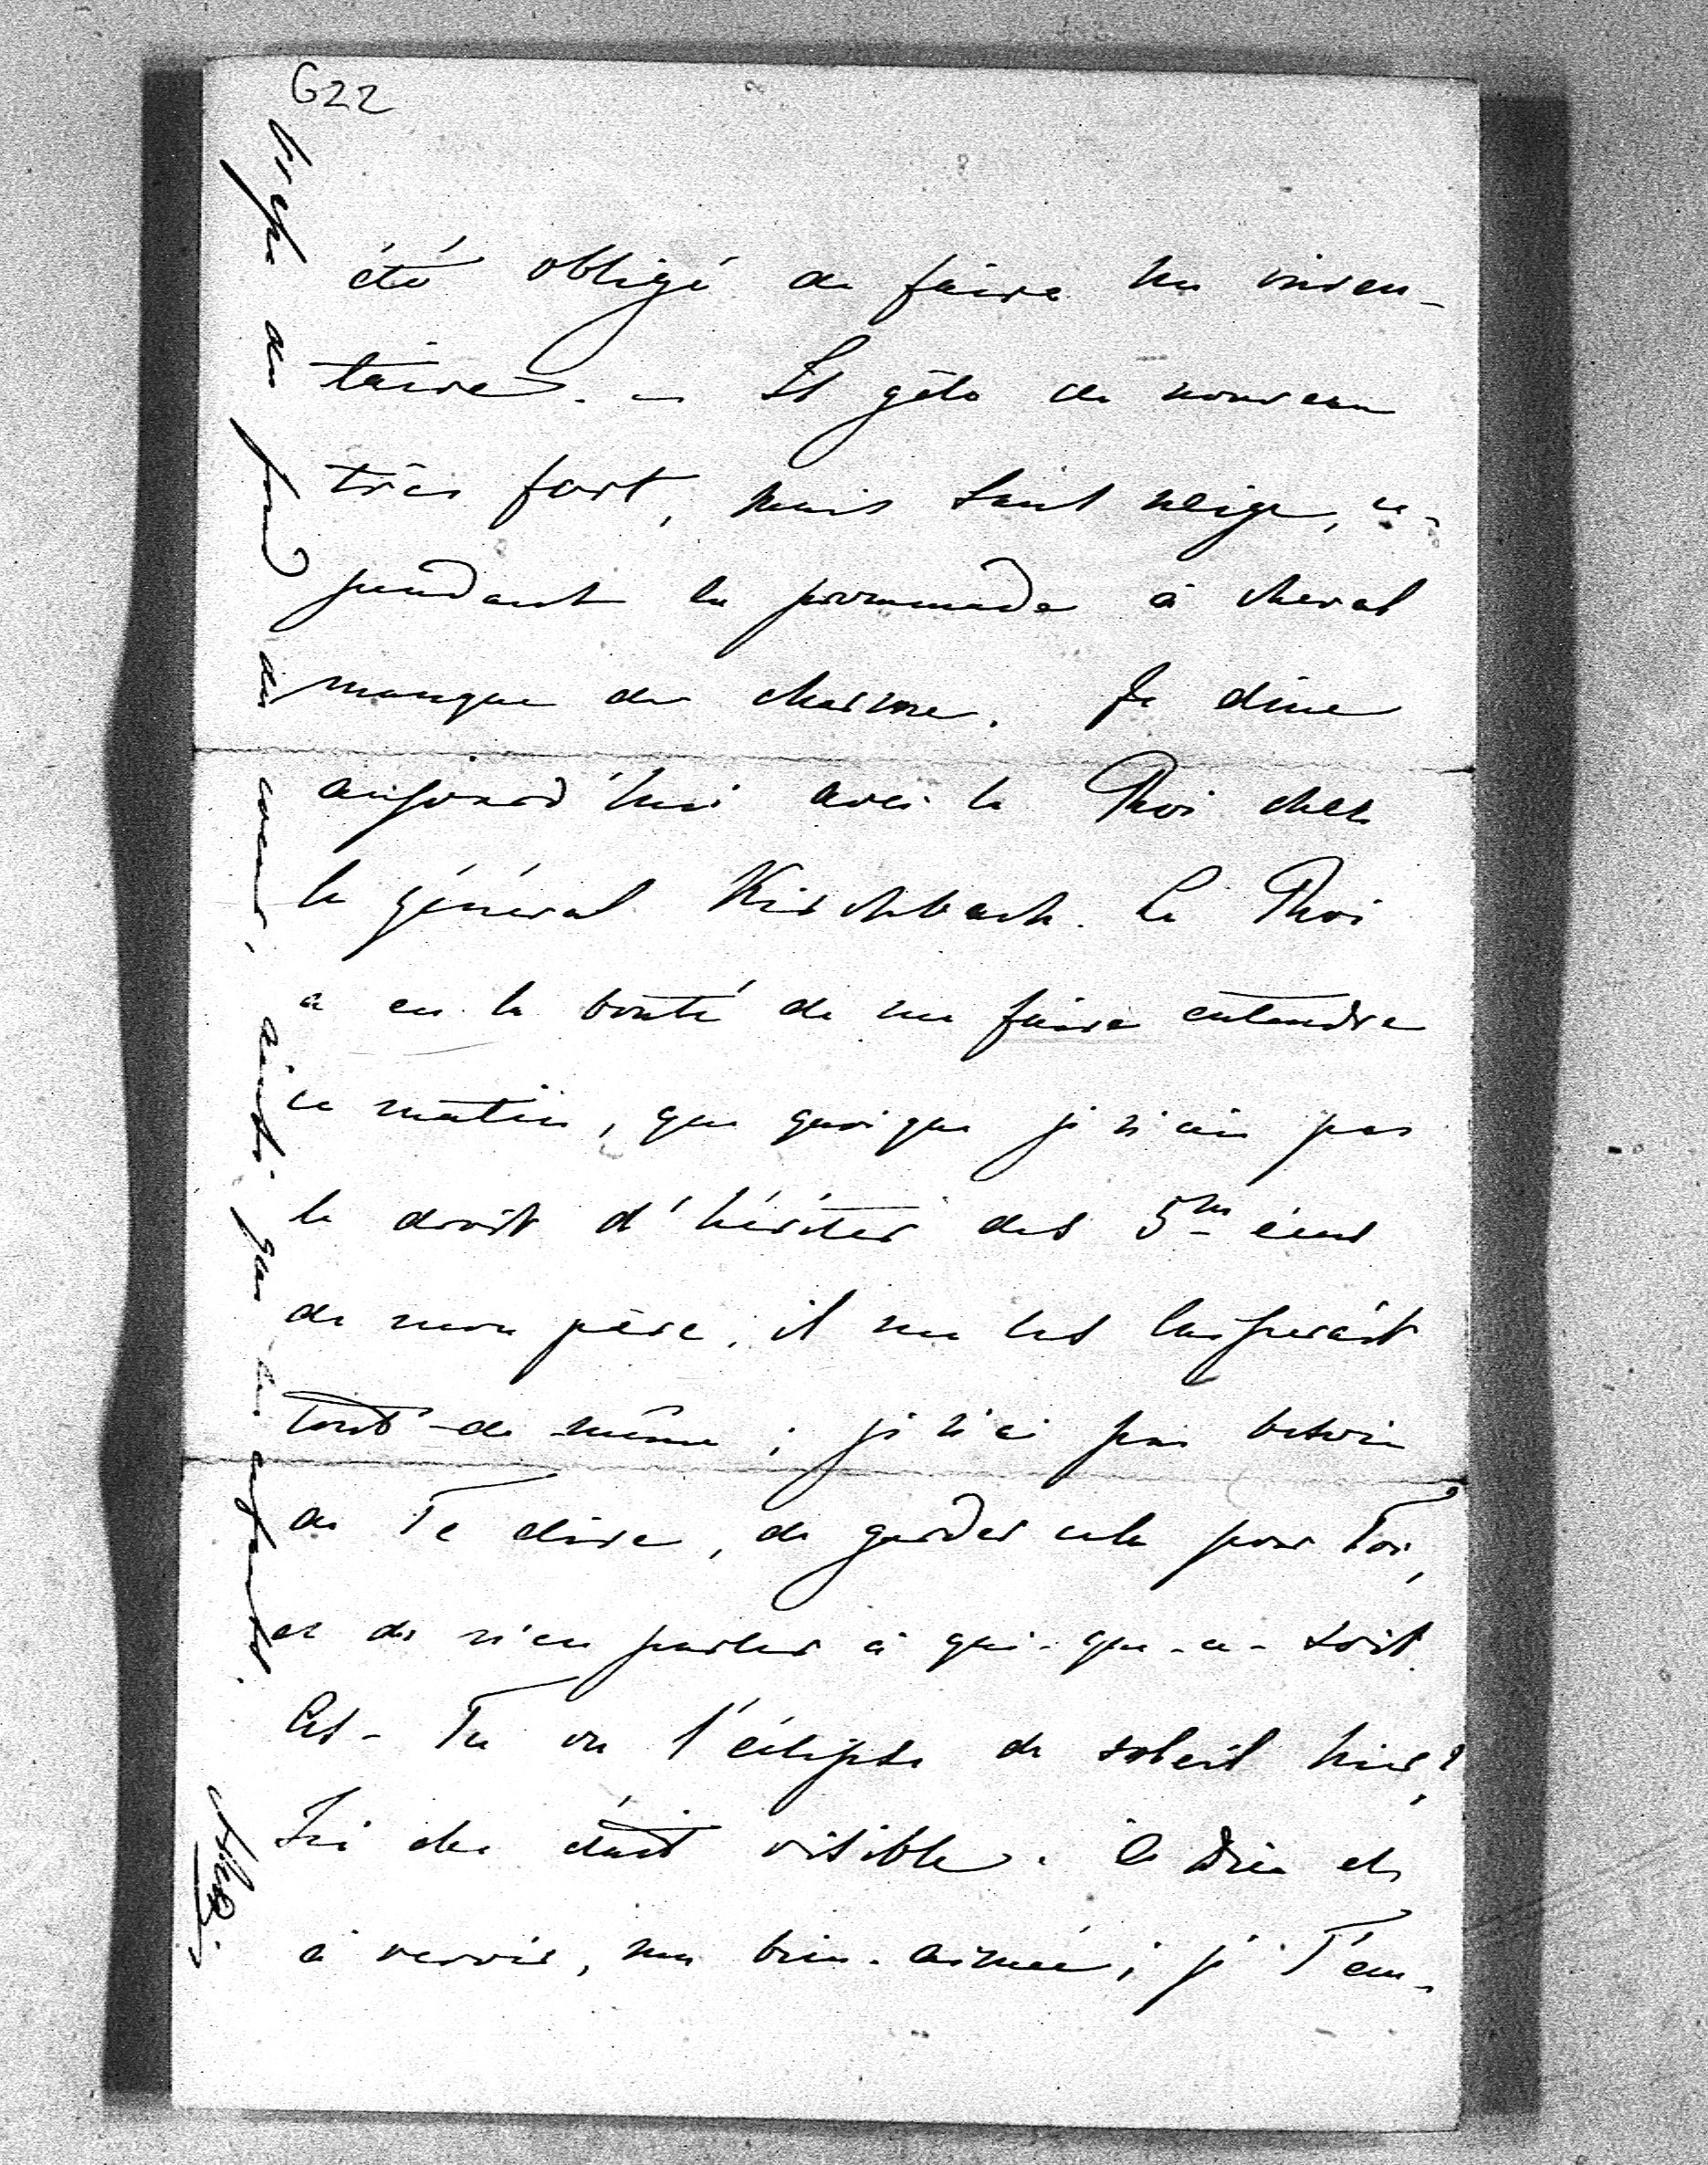 G22
été obligé de faire un inven-
taire. — Il gèle de nouveau
très fort, mais sans neige, ce-
pendant la promenade à cheval
manque de charme. Je dine
aujourd'hui avec le Roi chez
le général Kirchbach. Le Roi
a eu la bonté de me faire entendre
ce matin, que quoique je n'aie pas
le droit d'hériter des 5m écus
de mon père, il me les laisserait
tout-de-même; je n'ai pas besoin
de Te dire, de garder cela pour Toi,
et de n'en parler à qui-que-ce-soit.
As-Tu vu l'éclipse de soleil hier?
Ici elle était visible. A Dieu et
à revoir, ma bien-aimée; je T'em-
brasse du fond du coeur, ainsi que les enfants.